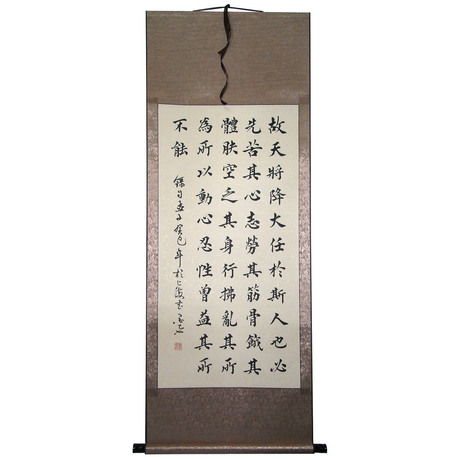 故天將降大任於斯人也必
先苦其心志勞其筋骨餓其
體肤空乏其身行拂亂其所
為所以動心忍性曾益其所
不能
孟子癸巳年於上海